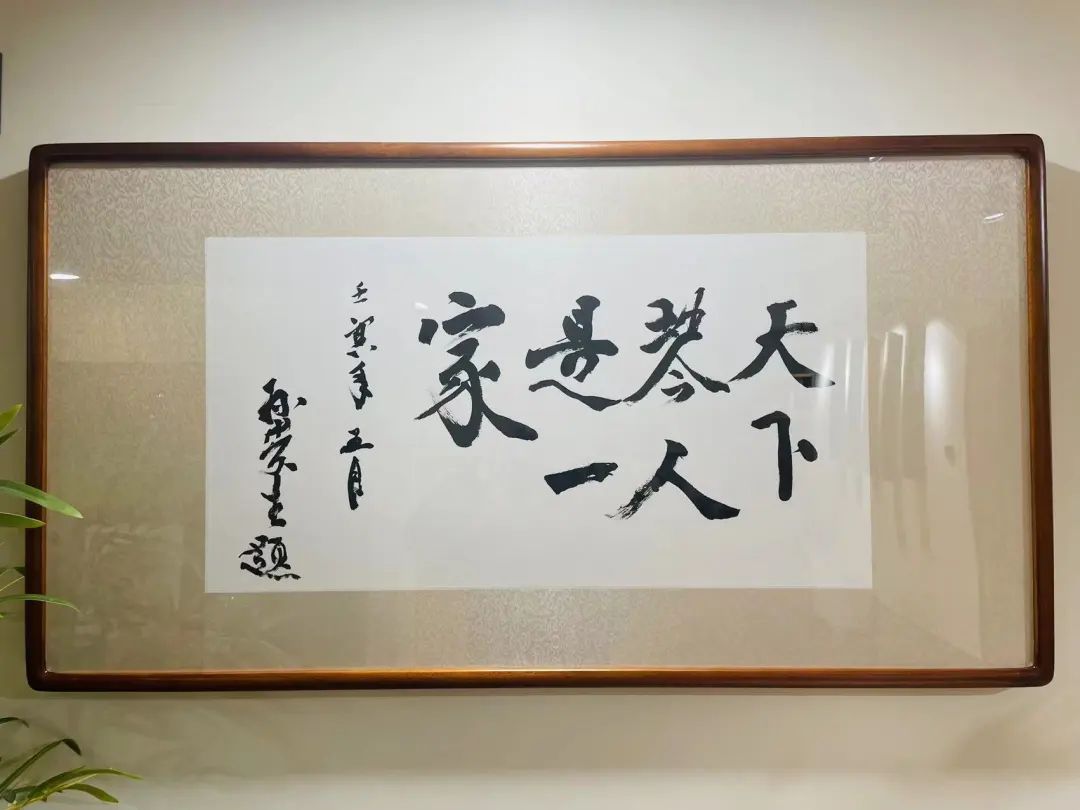 天下
琴人
是一
家
壬寅年五月
題